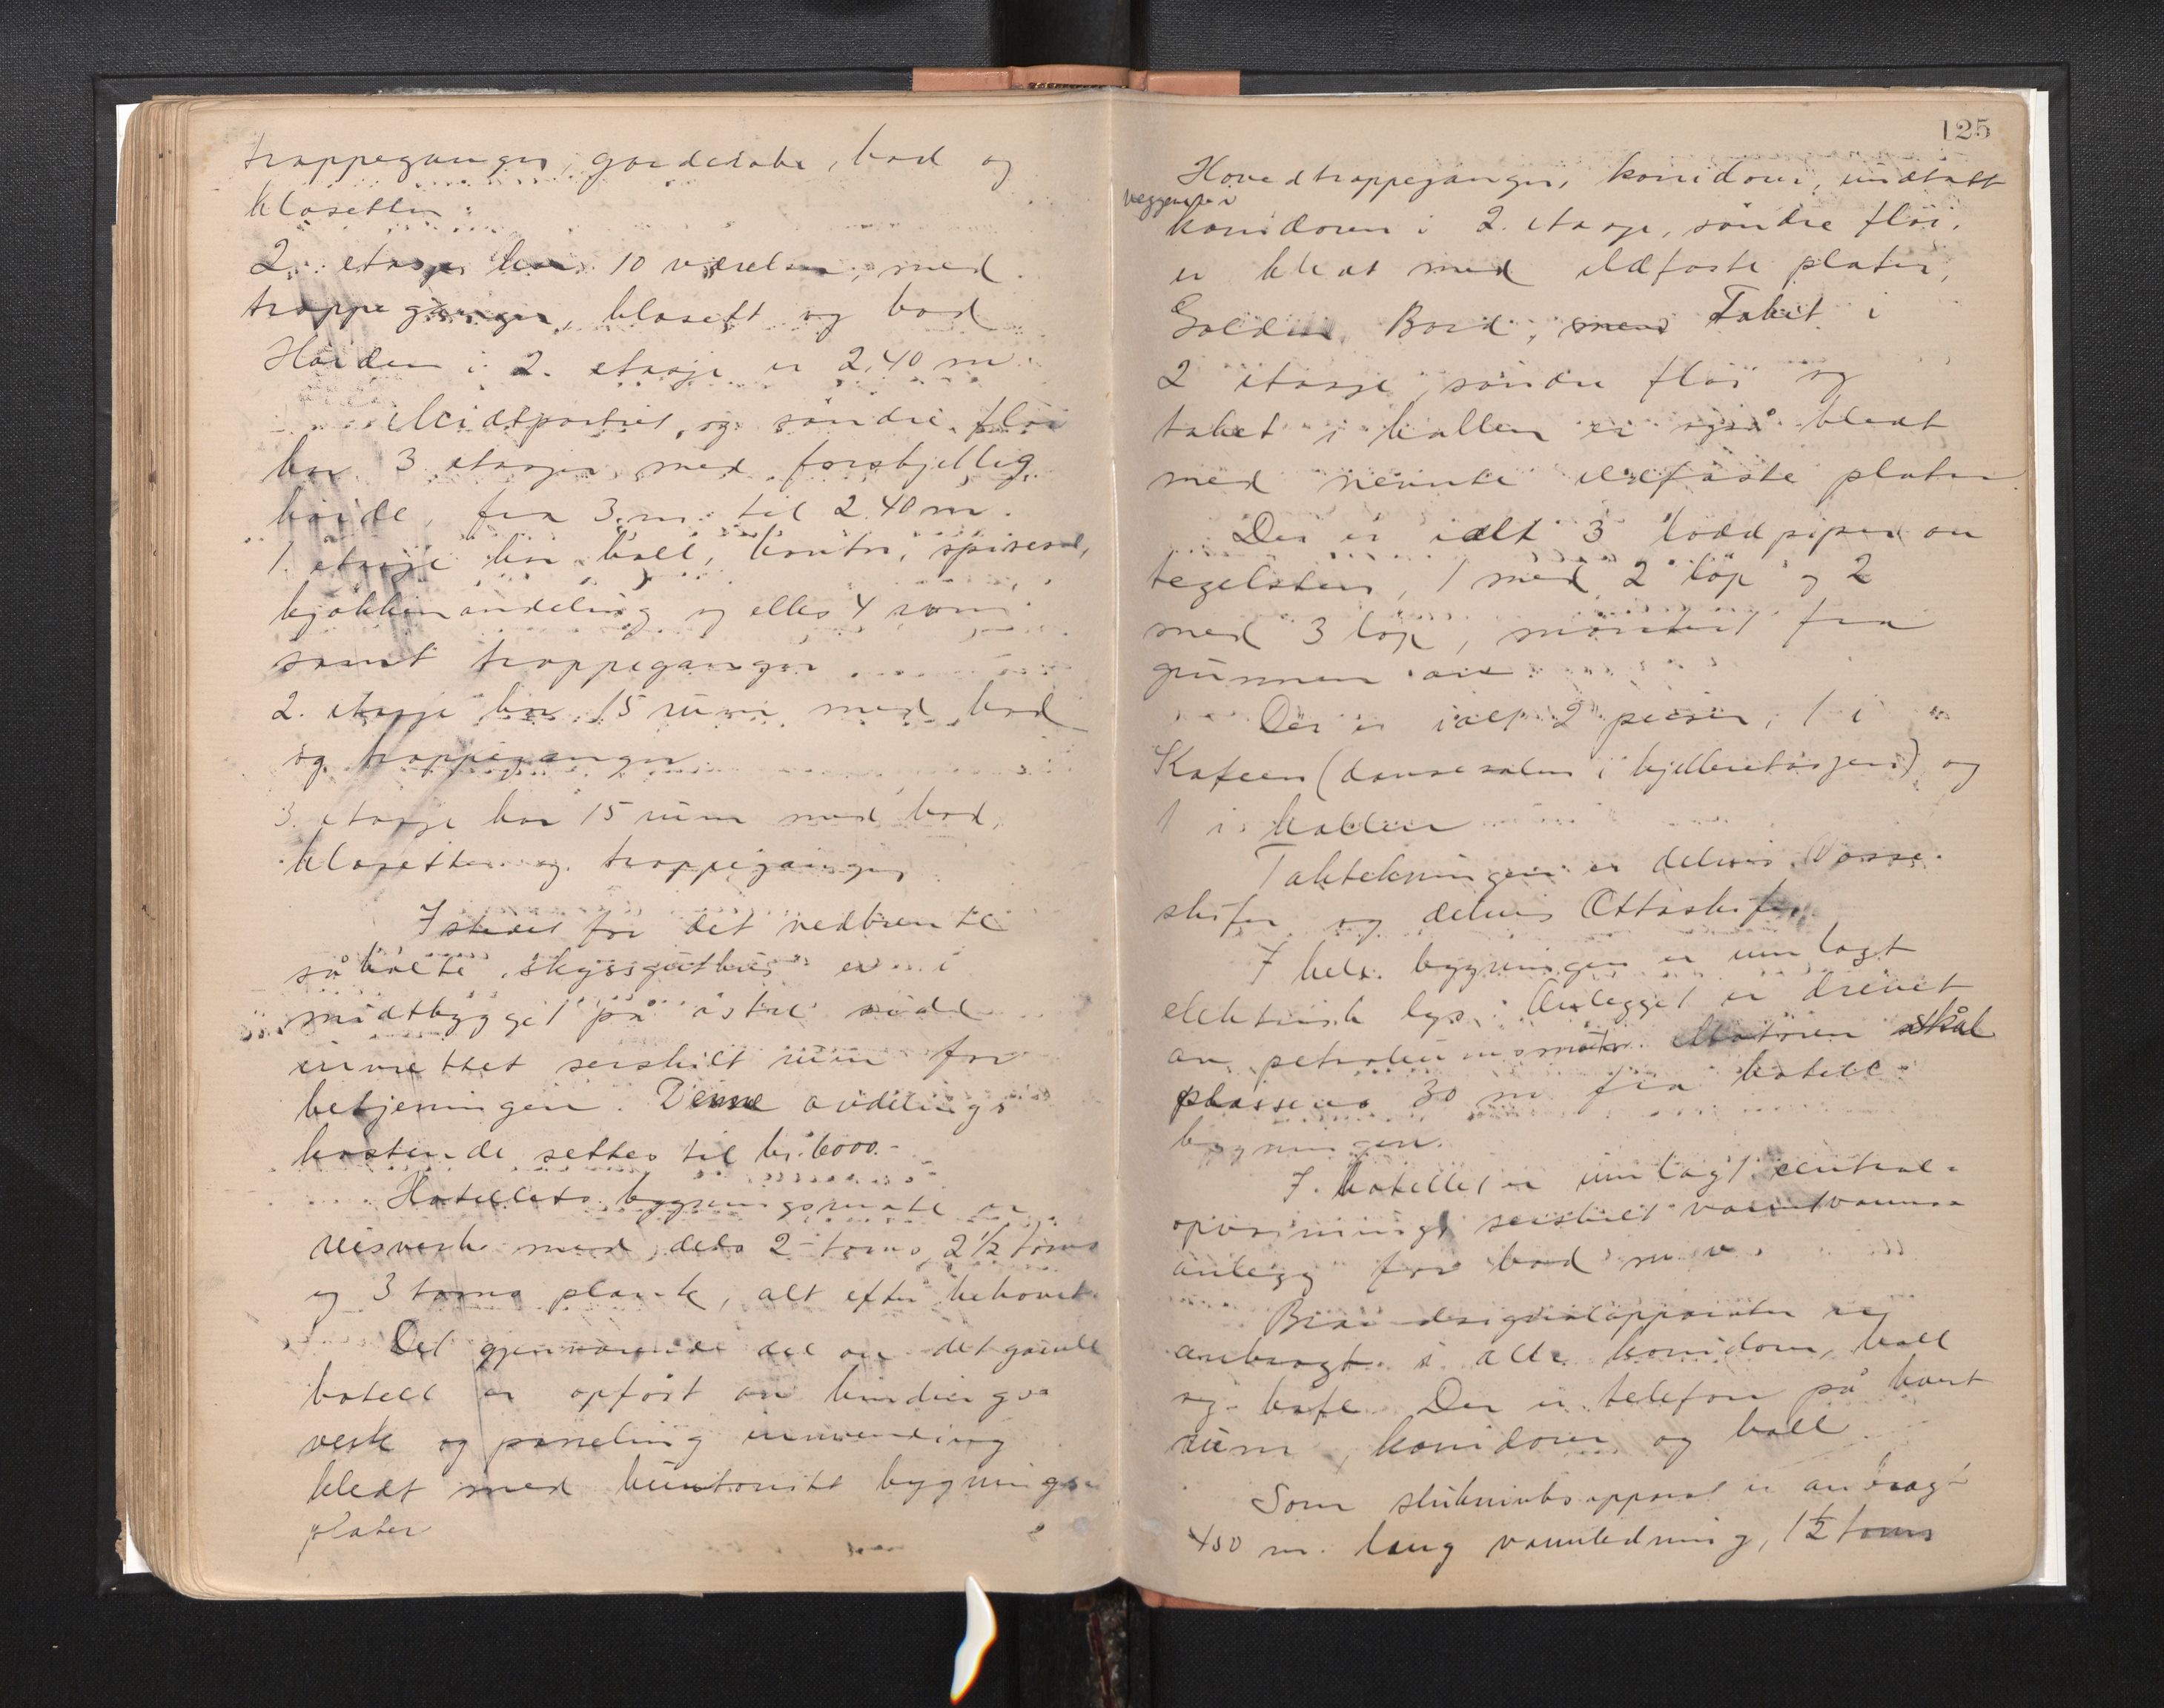 trappeganger, garderobe, bad og
klosetter.
2. etasje har 10 værelser, med
trappeganger, klosett og bad
Høiden i 2. etasje er 2,40 m.
Midtpartiet og søndre fløi
har 3 etasjer med forskjellig
høide, fra 3 m. til 2.40 m.
1. etasje har hall, kontor, spisesal,
kjøkkenavdeling og elles 4 rom
samt trappeganger
2. etasje har 15 rum med bad
og trappeganger
3. etasje har 15 rum med bad,
klosetter og trappeganger
I stedet for det nedbrente
såkalte "skyssguthus" er i
midtbygget på østre side
innrettet serskilt rum for
betjeningen. Denne avdelings
kostende settes til kr. 6000.-
Hotellets bygningsmåte er
reisverk med dels 2 toms, 2½ toms
og 3 toms plank, alt efter behovet.
Det gjenværende del av det gamle
hotell er opført av bindings-
verk og paneling innvendig
kledt med huntonitt bygnings-
plater
125
Hovedtrappeganger, koridorer, undtatt
veggene i
koridoren i 2. etasje, søndre fløi,
er kledt med ildfaste plater,
Golden Bord, men Taket i
2 etasje søndre fløi og
taket i hallen er også kledt
med nevnte ildfaste plater.
Der er ialt 3 loddpiper av
tegelsten, 1 med 2 løp og 2
med 3 løp, muret fra
grunnen av.
Der er ialt 2 peiser, 1 i
Kafeen (dansesalen i kjelleretasjen) og
1 i hallen
Taktekningen er delvis Vosse-
skifer og delvis Ottaskifer
I hele bygningen er innlagt
elektrisk lys. Anlegget er drevet
av petroleumsmotor. Motoren skal
plasseres 30 m fra hotell-
bygningen.
I hotellet er innlagt central-
opvarming, serskilt varmtvanns-
anlegg for bad m.v.
Brandsignalapparater er
anbragt i alle koridorer, hall
og kafe. Der er telefon på hvert
rum, koridorer og hall.
Som sluknings apparat er anbragt
450 m. lang vannledning, 1½ toms